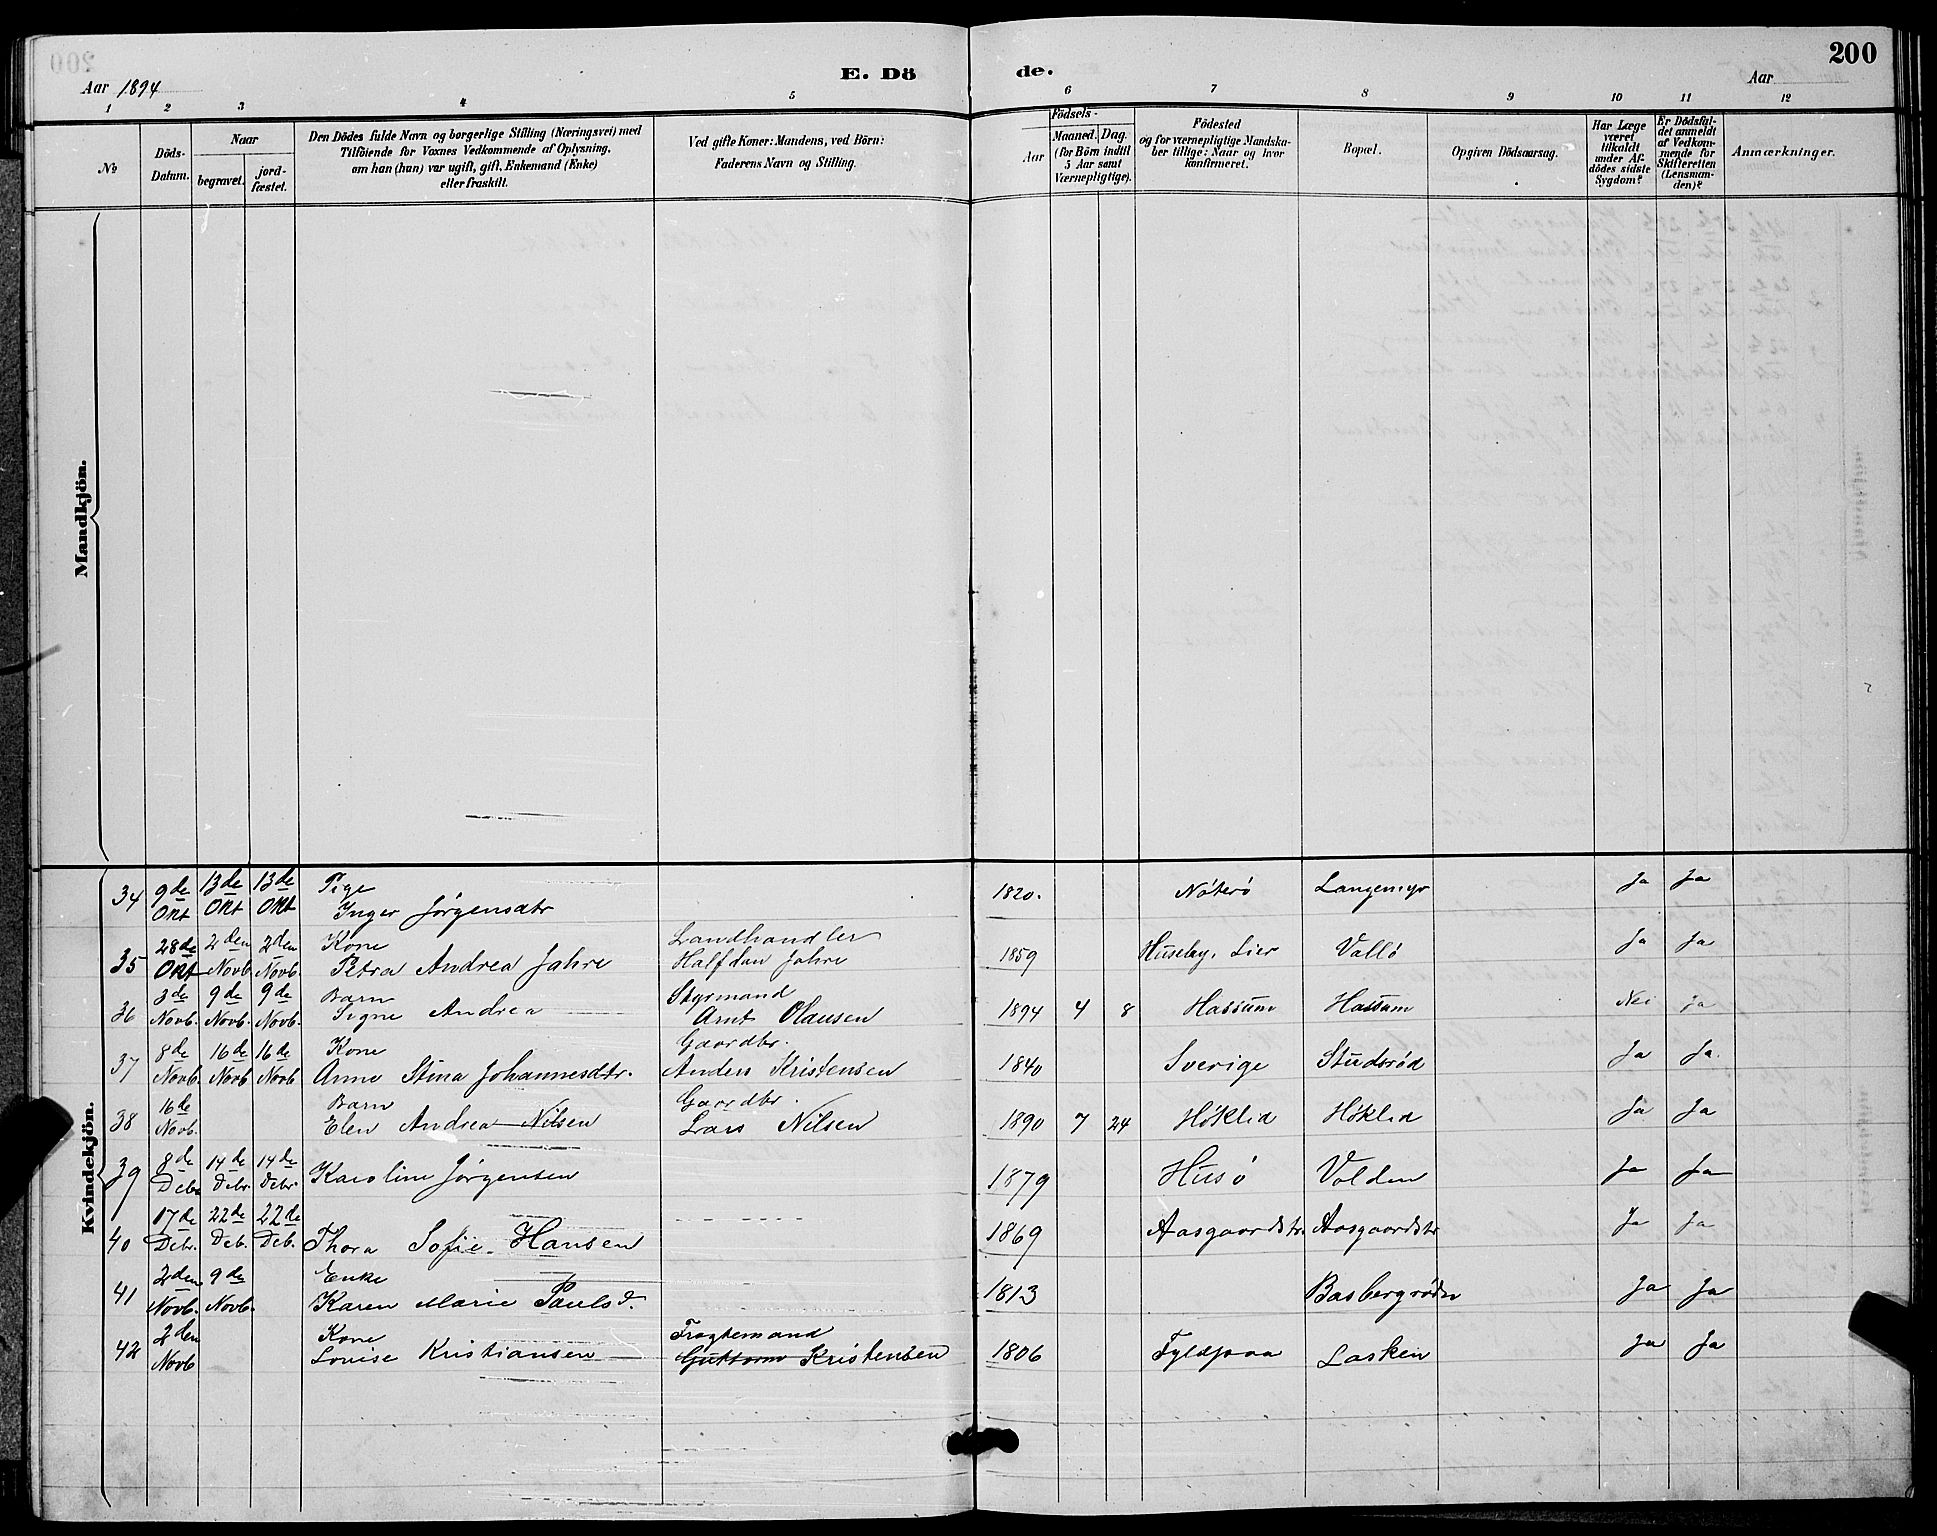 200
Aar 1894
E. Dö de.
Aar
1 2 3 4 5 6 7 8 9 10 11 12
No
Döds-Datum.
Naar
begravet.
jord-fæstet.
Den Dödes fulde Navn og borgerlige Stilling (Næringsvei) med
Tilföiende for Voxnes Vedkommende af Oplysning,
om han (hun) var ugift, gift, Enkemand (Enke)
eller fraskilt.
Ved gifte Koner: Mandens, ved Börn:
Faderens Navn og Stilling.
Födsels-
Aar
Maaned. Dag.
(for Börn indtil
5 Aar samt
Værnepligtige).
Födested
og for værnepligtige Mandska-
ber tillige: Naar og hvor
konfirmeret.
Bopæl.
Opgiven Dödsaarsag.
Har Læge
været
tilkaldt
under Af-
dödes sidste
Sygdom?
Er Dödsfal-
det anmeldt
af Vedkom-
mende for
Skifteretten
(Lensman-
den)?
Anmærkninger.
Mandkjön.
Kvindekjön.
34 9de Okt 13de Okt 13de Okt Pige
Inger Jörgensdtr 1820. Nöterö Langemyr Ja Ja
35 28de Okt 2den Novb. 2den Novb. Kone Landhandler
Petra Andrea Jahre Halfdan Jahre 1859 Huseby, Lier Vallö Ja Ja
36 3de Novb. 9de Novb. 9de Novb. Barn Styrmand
Signe Andrea Arnt Olausen 1894 4 8 Hassum Hassum Nei Ja
37 8de Novb. 16de Novb 16de Novb Kone Gaardbr.
Anne Stina Johannesdtr. Anders Kristensen 1840 Sverige Studsröd Ja Ja.
38 16de Novb. Barn Gaardbr.
Elen Andrea Nilsen Lars Nilsen 1890 7 24 Höklid Höklid Ja Ja
39 8de Debr 14de Debr. 14de Debr. Karoline Jörgensen 1879 Husö Volden Ja Ja
40 17de Debr. 22de Deb. 22de Deb. Thora Sofie Hansen 1869 Aasgaardstr. Aasgaardstr Ja Ja
41 2den Novb. 9de Novb. Enke
Karen Marie Paulsd. 1813 Basbergröds Ja Ja
42 2den Novb Kone Fragtemand
Louise Kristiansen Guttorm Kristensen 1806 Fyldpaa Lasken Ja Ja